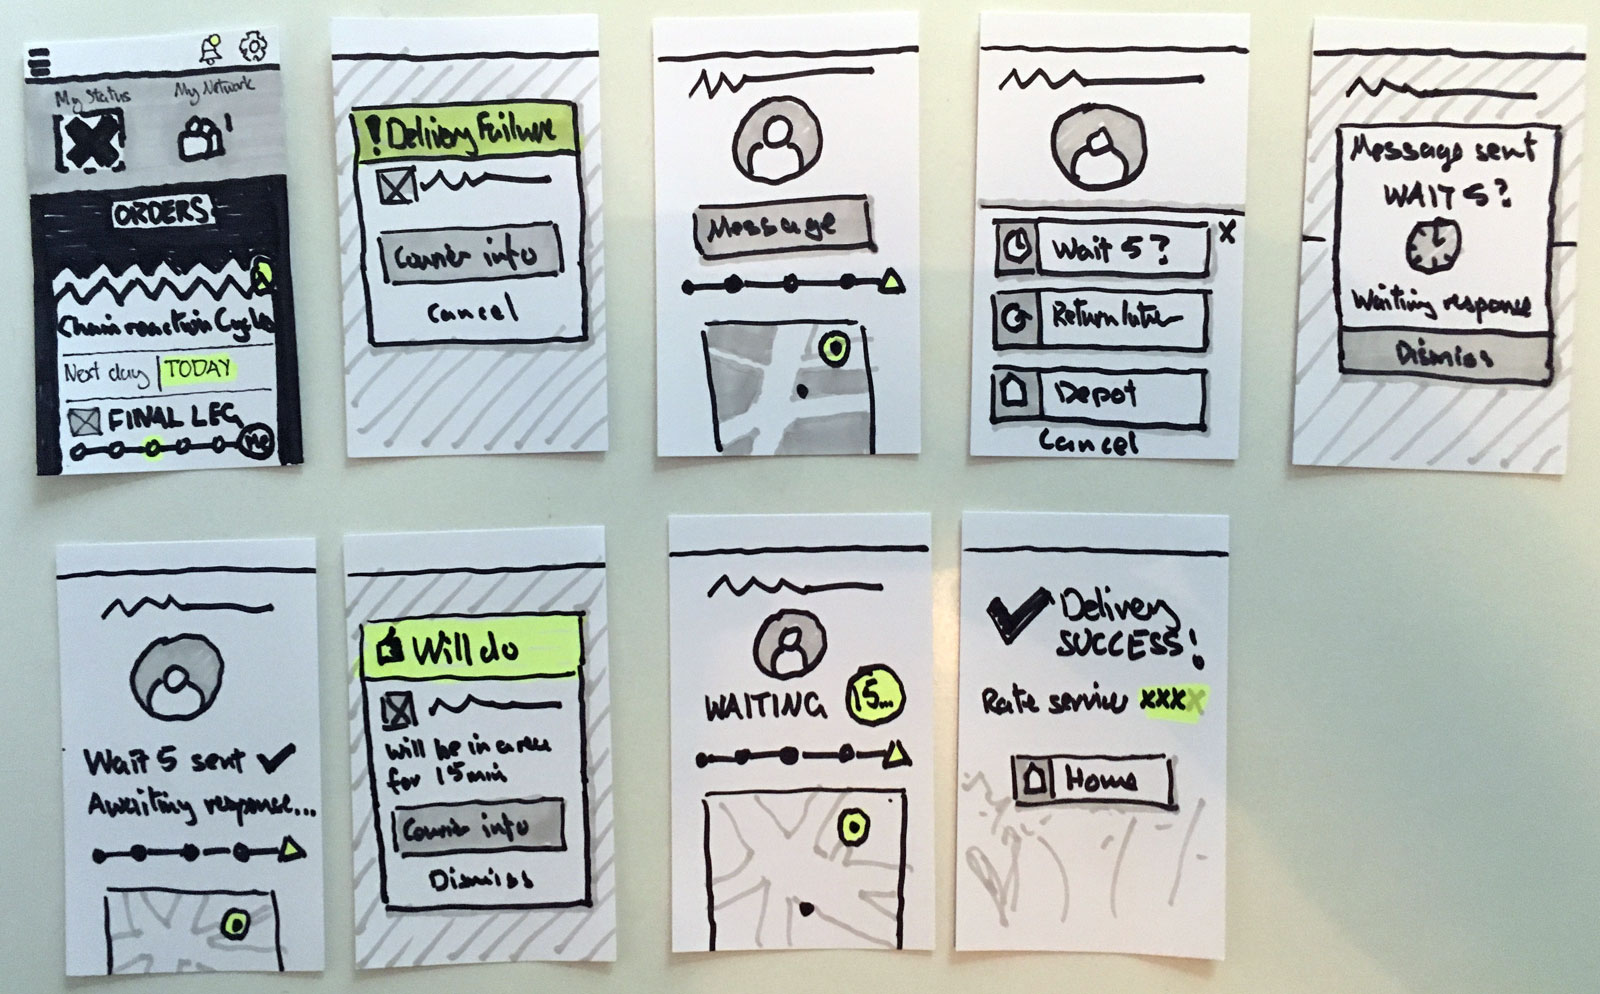 My Status
My Network
ORDERS
Chain reaction Cycles
Next day
TODAY
FINAL LEG
Me
! Delivery Failure
Courier info
Cancel
Message
Wait 5?
X
Return later
Depot
Cancel
Message sent
WAIT 5?
Waiting response
Dismiss
Wait 5 sent
Awaiting response...
Will do
Will be in area
for 15 min
Courier info
Dismiss
WAITING
15...
Delivery
SUCCESS!
Rate service xxxx
Home